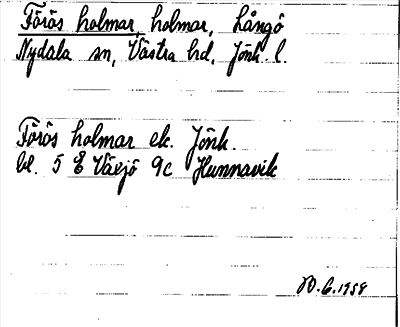 Förös holmar, holmar, Långö
Nydala sn, Västra hd, Jönk. l.
Förös holmar ek. Jönk.
bl. 5 E Växjö 9c Hunnavik
1958